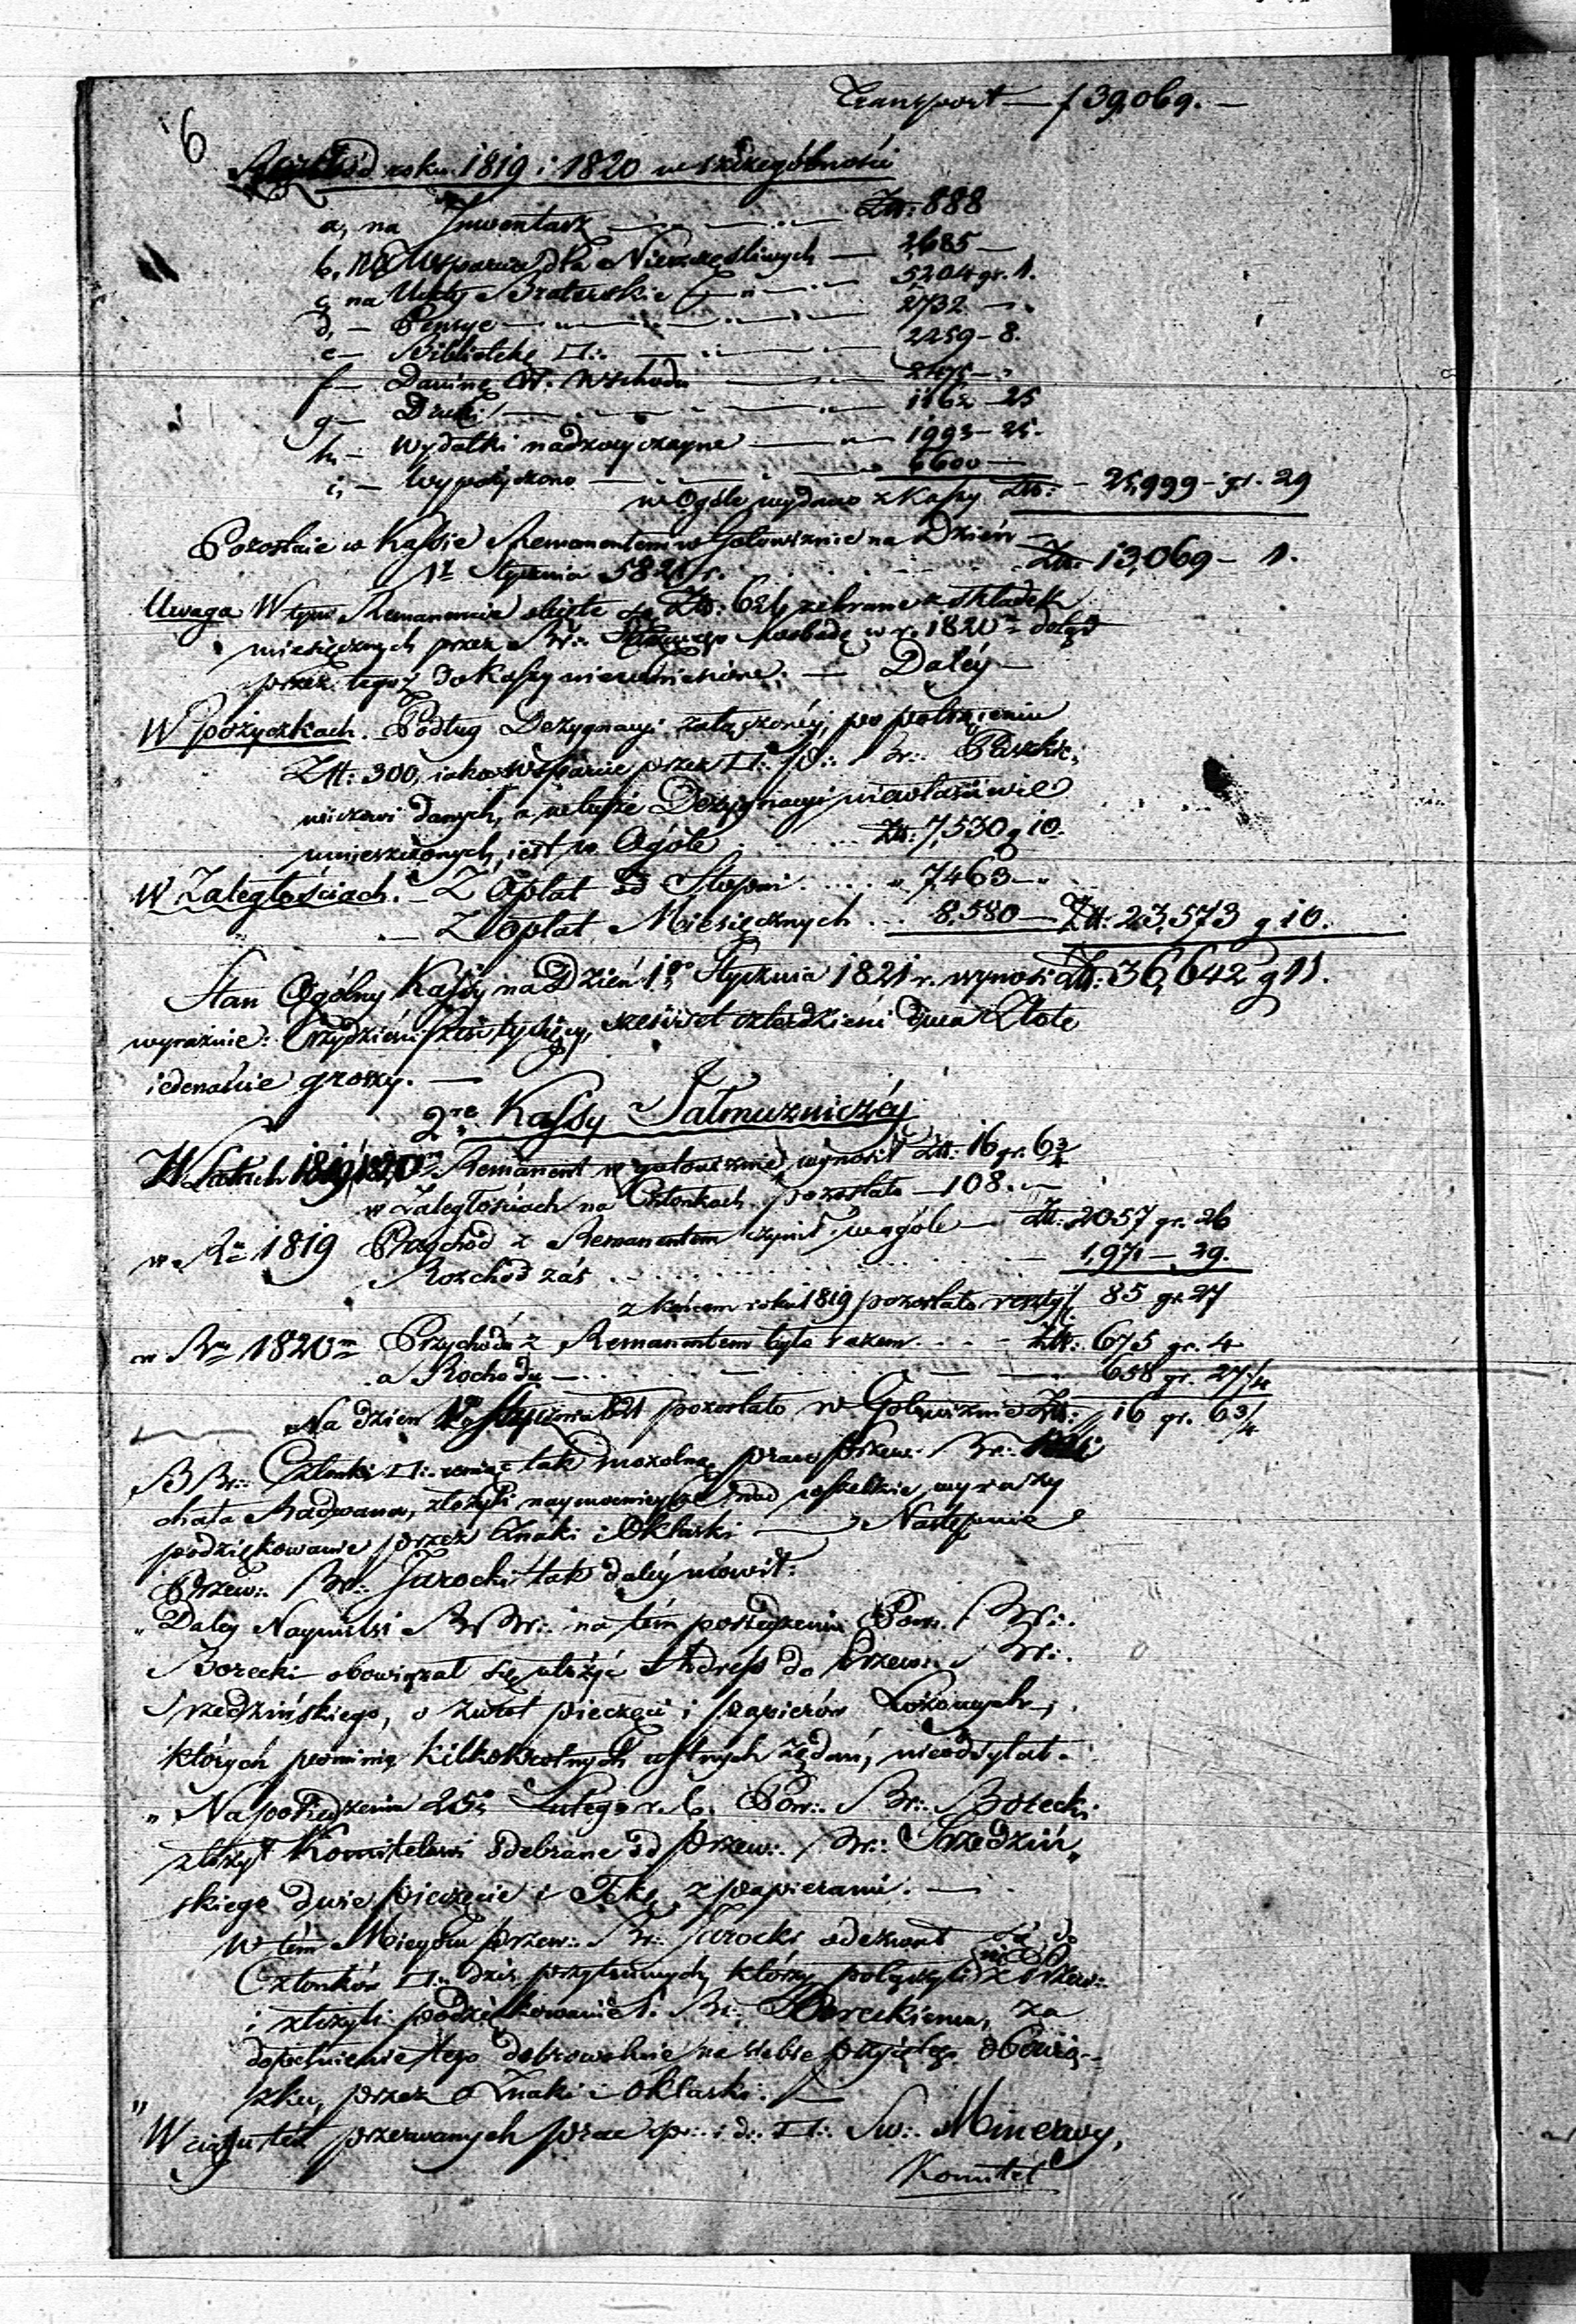 Transport — f 39,069. —
6
Rozchód roku 1819 i 1820 w szczególności
a, na Inwentarz — Złt: 888
b, na Wsparcia dla Nieszczęśliwych — 2,685 —
c, na Uczty Braterskie — 5204 gr. 1.
d, — Pensye — 2732 —
e — Bibliotekę □∴ — 2259 – 8.
f — Daninę W. Wschodu —
g — Druki — 1162 – 25
h, — Wydatki nadzwyczayne — 1993 – 25.
i, — Wypożyczono — 6600 —
w Ogóle wydano z Kassy Złt: – 25,999 – gr. 29
Pozostaie w Kassie Remanentem w Gotowiznie na Dzień —
1° Stycznia 5821 r. Złt: 13,069 – 1.
Uwaga W tym Remanencie objęte są Złt: zebrane z składek
miesięcznych przez Br∴ Swobodę w r. 1820m dotąd
przez tegoż do Kassy niewniesione. — Daléy —
W pożyczkach. Podług Dezygnacyi załączonéy, po potrąceniu
Złt: 300, iako wsparcie przez □∴ Br∴ Paszkie,
wiczowi danych, a w teyże Dezygnacyi niewłaściwie
umieszczonych, iest w Ogóle Złt: 7,530 g 10.
W Zaległościach. — Z Opłat od Stopni . . . . „ 7,463 — „
— Z opłat Miesięcznych . . . 8,580 — Złt: 23,573 g 10.
Stan Ogólny Kassy na Dzień 1go Stycznia 1821 r. wynosi Złt: 36,642 g 11.
wyraźnie: Trzydzieści sześć tysięcy, sześćset czterdzieści dwa Złote
iedenaście groszy. —
2re Kassy Jałmużniczéy
W Latach 1819/1820m Remanent w gotowiznie wynosił Złt: 16 gr. 6 3/4
w Zaległościach na Członkach pozostało — 108. —
w Ru 1819 Przychód z Remanentem czynił w ogóle — Złt: 2057 gr. 26
Rozchód zaś . . . . . . 1,971 — 29.
z końcem roku 1819 pozostało reszty 85 gr. 27
w Ru 1820m Przychodu z Remanentem było razem . . . Złt: 675 gr. 4
a Rochodu — . . . 658 gr. 27 1/4
Na dzień 1° Stycznia 821 pozostało w Gotowiznie Złt: 16 gr. 6 3/4
BBr∴ Członki □∴ ceniąc tak mozolną pracę Przew∴ Br∴ Mi
chała Radwana, złożyli naymocnieysze nad wszelkie wyrazy
podziękowanie przez Znaki i Oklaski — Następnie
Przew∴ Br∴ Jarocki tak daléy mówił:
„Daley Naymilsi BrBr∴ na tém posiedzeniu Pow∴ Br∴
Borecki obowiązał się ułożyć Adress do Przew∴ Br∴
Srzedzińskiego, o zwrot pieczęci i papierów Lożowych,
których pomimo kilkokrotnych ustnych żądań, nieodsyłał.
„Na posiedzeniu 25° Lutego r. b. Pow∴ Br∴ Borecki
złożył Komitetowi odebrane od Przew∴ Br∴ Srzedziń„
skiego dwie pieczęcie i Tekę z papierami. —
W tém Mieyscu Przew∴ Br∴ Jarocki odezwał się do
Członków □∴ dziś przytomnych, którzy połączyli się z Przew∴
i złożyli podziękowanie Br∴ Boreckiemu, za
dopełnienie tego dobrowolnie na siebie przyiętego obowią-
zku, przez Znaki i Oklaski. —
„W ciągu téż przerwanych prac sp∴ i d∴ □∴ Sw∴ Minerwy,
Komitet